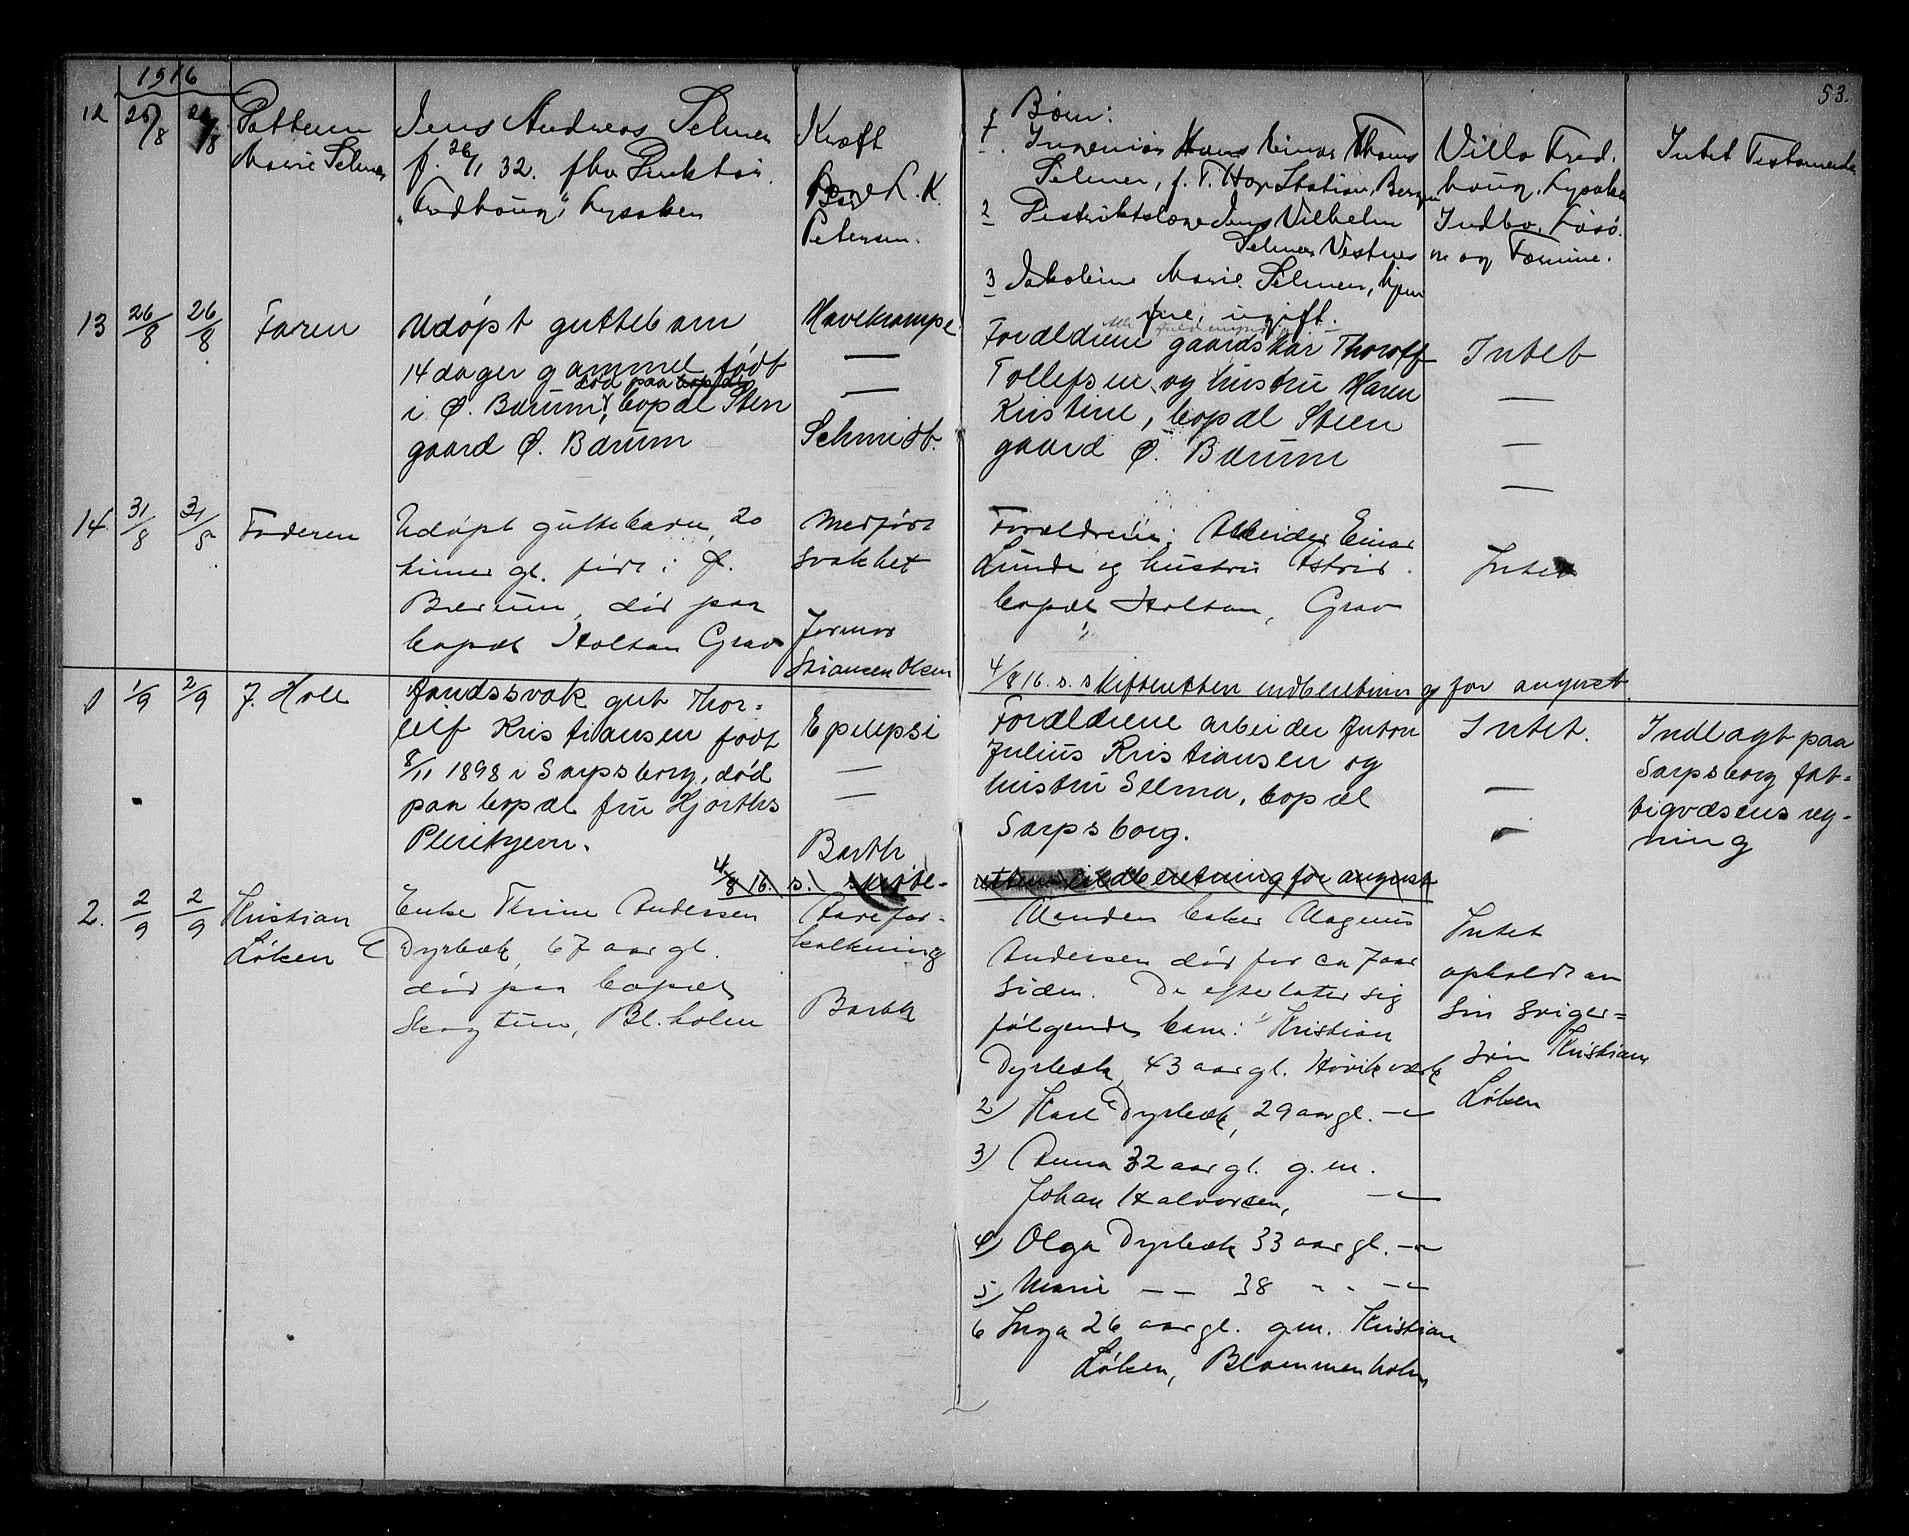 1916
53.
12 25/8 26/8 Datteren
Marie Selmer
Jens Andreas Selmer
f. 26/1 32. fhv
"Fredhoug" Lysaker
Kræft
L. K.
Petersen.
Børn:
1. Ingeniør Hans Einar Thams
Selmer, f. T. Hop Station, Bergen
2 Distriktslæge Jens Vilhelm
Selmer, Vestnes
3 Jakobine Marie Selmer, hjem
me, ugift.
Alle fuldmyndige
Villa Fred.
houg, Lysaker
Indbo, Løsø.
re og
Intet Testamente
13 26/8 26/8 Faren
Udøpt guttebarn
14 dager gammel født
død paa bopæls
i Ø. Bærum, bopæl Sten
gaard Ø. Bærum
Mavekrampe
—
—
Schmidt.
Forældrene gaardskar Thoroff
Tollefsen og hustru Maren
Kristine, bopæl Steen
gaard Ø. Bærum
Intet
—
—
—
14. 31/8 31/8 Faderen
Udøpt guttebarn, 20
timer gl. født i Ø.
Bærum, død paa
bopæl Holtan Grav
Medfødt
svakhet
Stiansen Olsen
Forældrene: Arbeider Einar
Lunde og hustru Astrid
bopæl Holtan, Grav
Intet
4/8 16. s. skifteretten indberetning for august.
1 1/9 2/9 J. Hole
Aandssvak gut Thor=
leif Kristiansen født
8/11 1898 i Sarpsborg, død
paa bopæl fru Hjorths
Pleiehjem.
Epilepsi
—
—
Barth
Forældrene arbeider Anton
Julius Kristiansen og
hustru Selma, bopæl
Sarpsborg.
Intet.
—
—
Indlagt paa
Sarpsborg fat=
tigvæsens reg-
ning
4/8 16. s. skifte-
retten indberetning for august
2. 2/9 2/9 Kristian
Løken
Enke Thrine Andersen
Dyrbæk, 67 aar gl.
død paa bopæl
Skogtun, Bl.holm
Aarefor-
kalkning
Barth
Manden baker Magnus
Andersen død for ca 7 aar
siden. De efterlater sig
følgende barn: 1) Kristian
Dyrbæk, 43 aar gl. Høvik værk
2) Karl Dyrbæk, 29 aar gl. —"—
3) Anna 32 aar gl. g.m.
Johan Halvorsen, —"—
4) Olga Dyrbæk 33 aar gl. —"—
5) Marie — — 38 " " —"—
6 Inga 26 aar gl. g.m. Kristian
Løken, Blommenholm
Intet
opholdt an
sin sviger=
søn Kristian
Løken